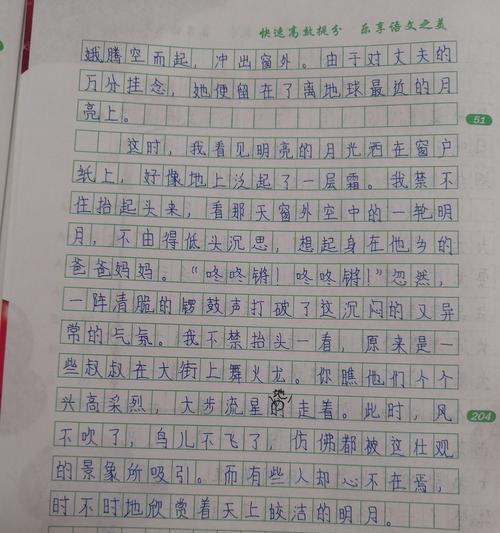 快速高效提分 乐享语文之美
娥腾空而起，冲出窗外。由于对丈夫的
万分挂念，她便留在了离地球最近的月
亮上。
51
这时，我看见明亮的月光洒在窗户
纸上，好像地上泛起了一层霜。我禁不
住抬起头来，看那天窗外空中的一轮明
月，不由得低头沉思，想起身在他乡的
爸爸妈妈。“咚咚锵！咚咚锵！”忽然，
一阵清脆的锣鼓声打破了这沉闷的又异
常的气氛。我不禁抬头一看，原来是一
些叔叔在大街上舞火龙。你瞧他们个个
兴高采烈，大步流星地走着。此时，风
204
不吹了，鸟儿不飞了，仿佛都被这壮观
的景象所吸引。而有些人却心不在焉，
时不时地欣赏着天上皎洁的明月。